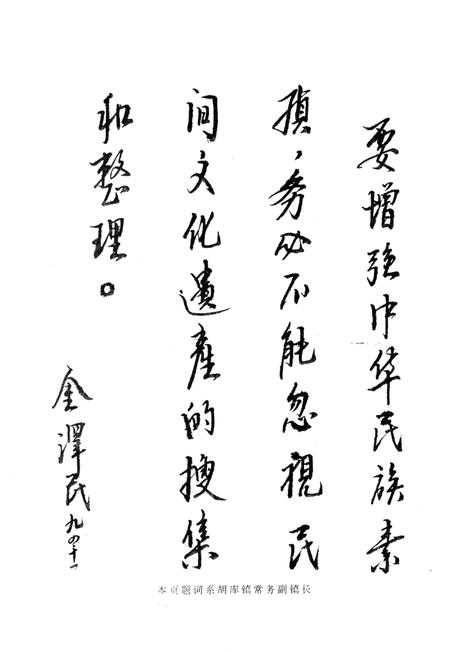 要增强中华民族素
质，务必不能忽視民
间文化遺産的搜集
和整理。
金澤民 九四.十一
本页题词系胡库镇常务副镇长